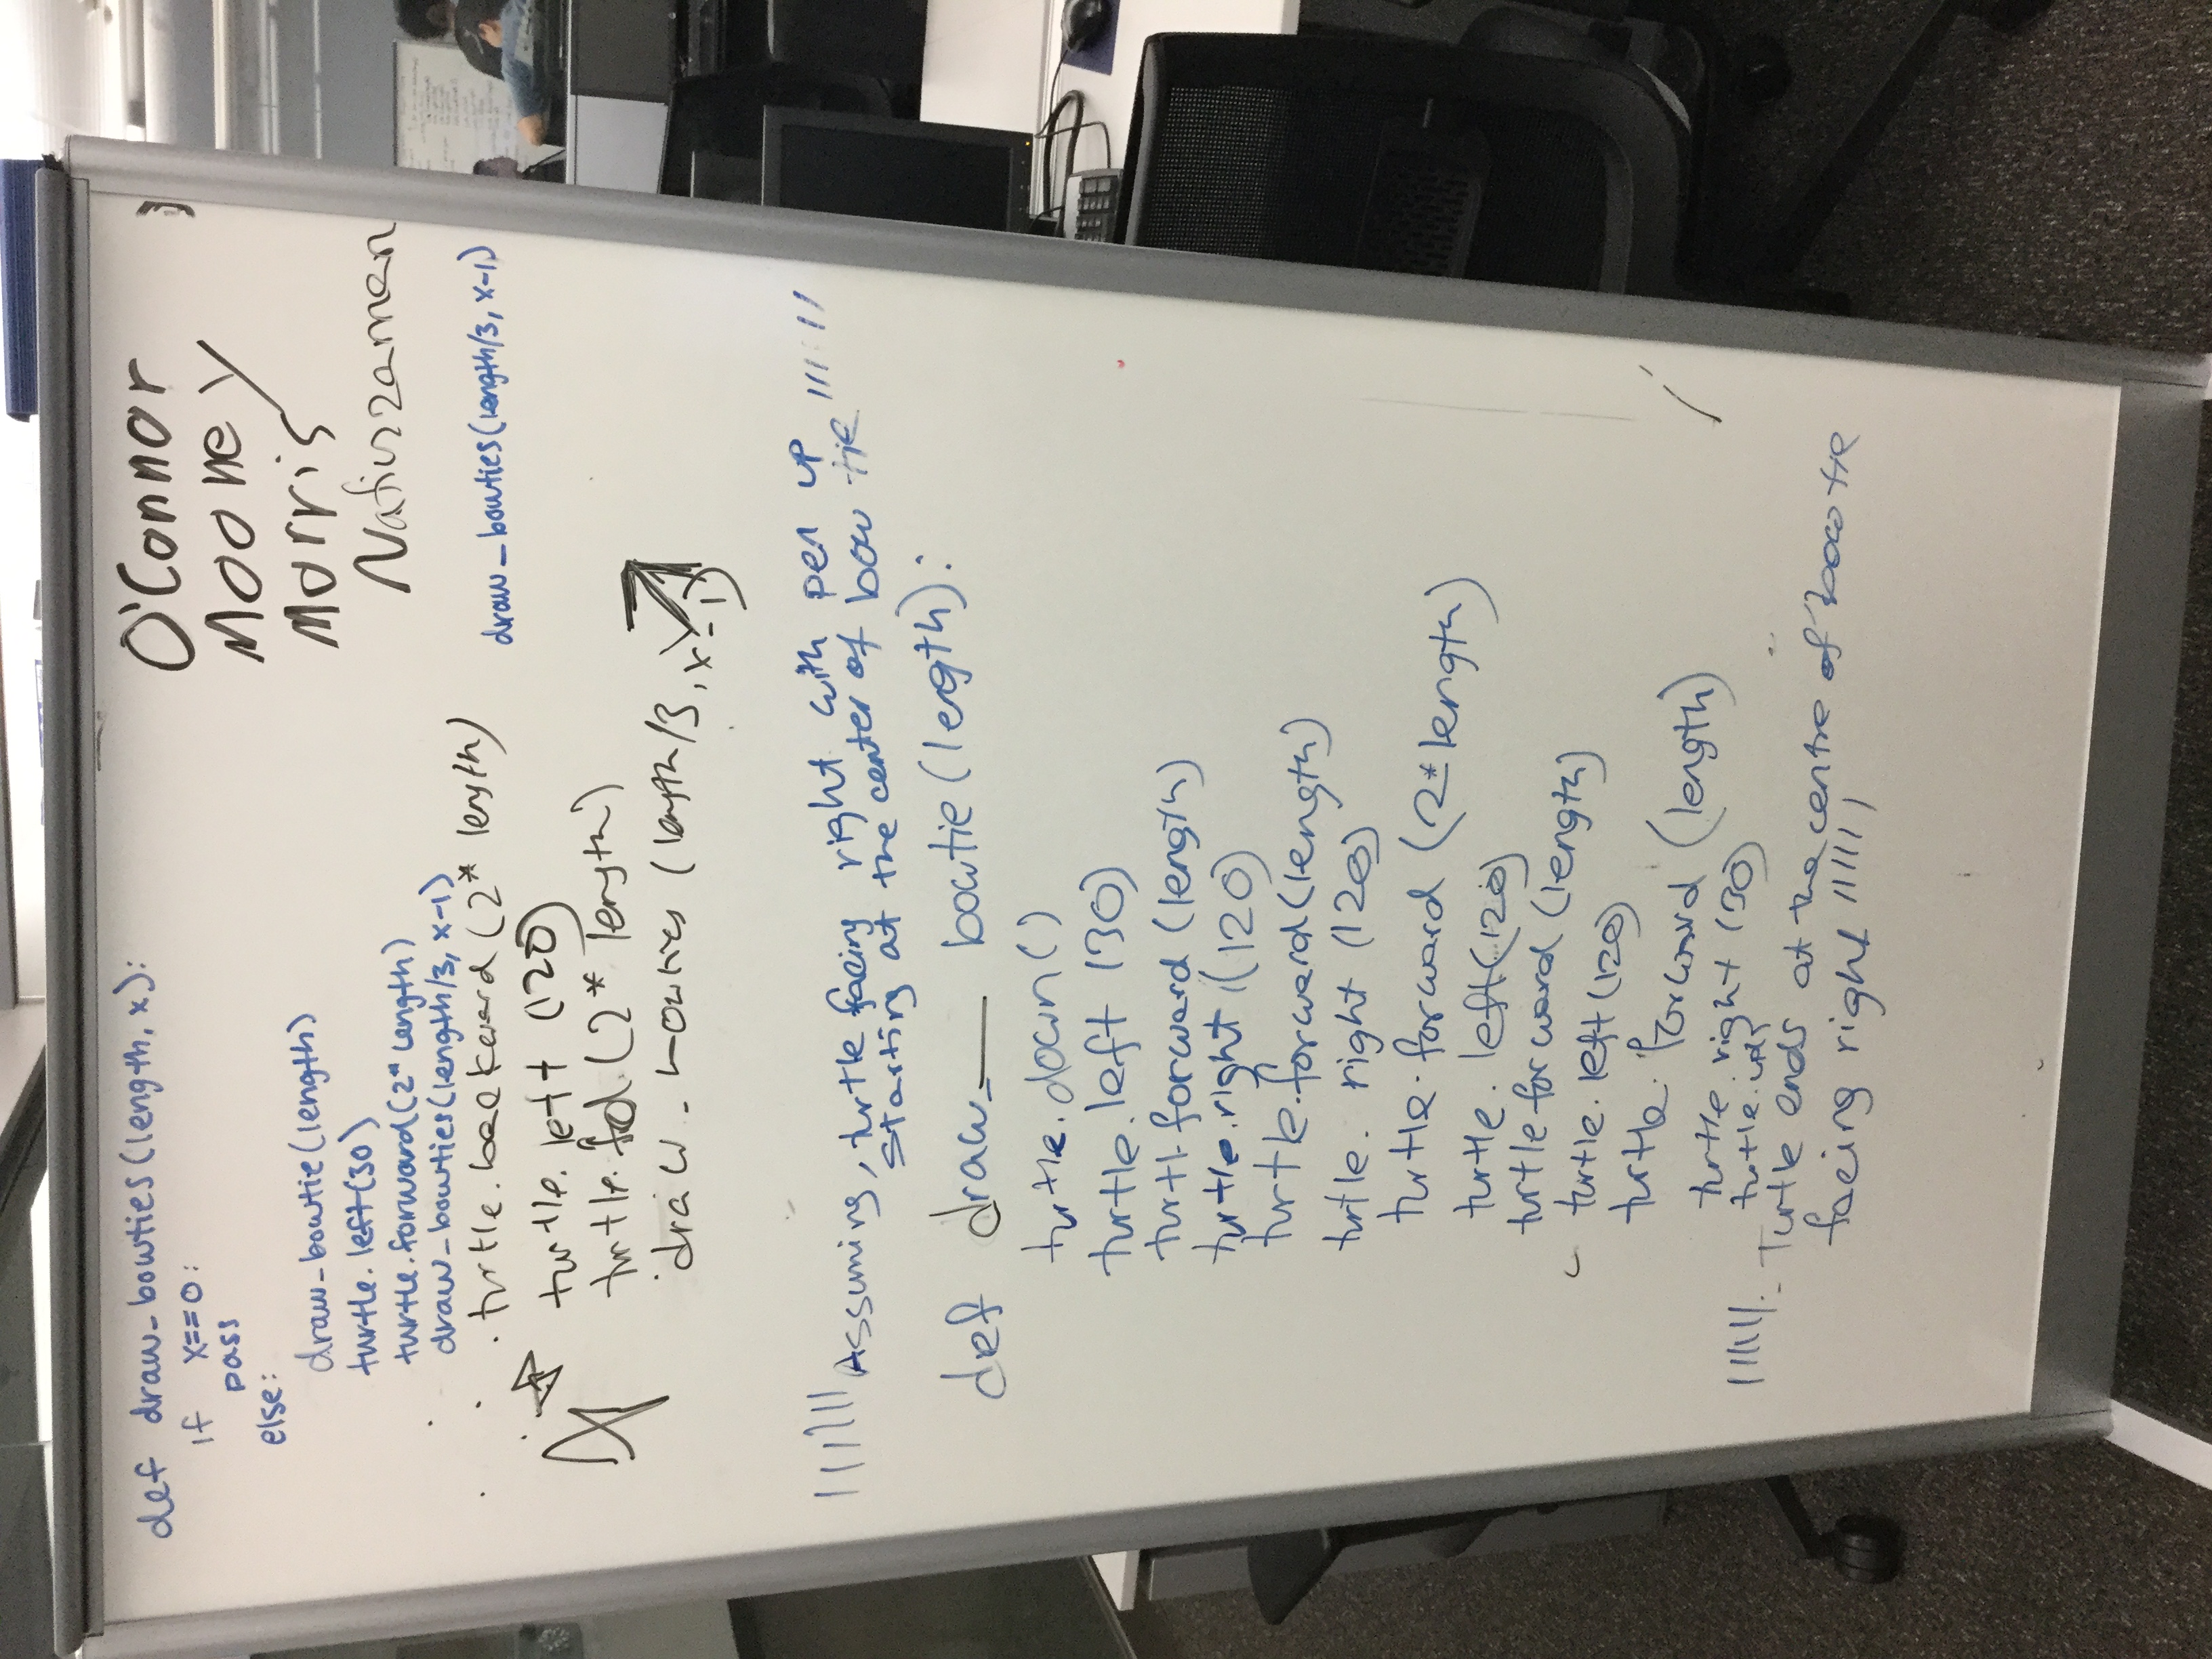 def draw_bowties(length, x):
if x==0:
pass
else:
draw_bowtie(length)
turtle.left(30)
turtle.forward(2*length)
draw_bowties(length/3, x-1)
turtle.backward(2* length)
turtle.left (120)
turtle.fd.(2* length)
draw_bowties (length/3, x-1)
O'Connor
Mooney
Morris
Nafiuzzaman
draw_bowties(length/3, x-1)
Assuming, turtle facing right with pen up
starting at the center of bow tie
def draw_ bowtie(length):
turtle.down()
turtle.left (30)
turtl.forward (length)
turtle.right (120)
turtle.forward(length)
turtle. right (120)
turtle.forward (2*length)
turtle. left(120)
turtle forward (length)
turtle. left(120)
turtle. forward (length)
turtle.right (30)
turtle.up()
Turtle ends at the centre of bow tie
facing right